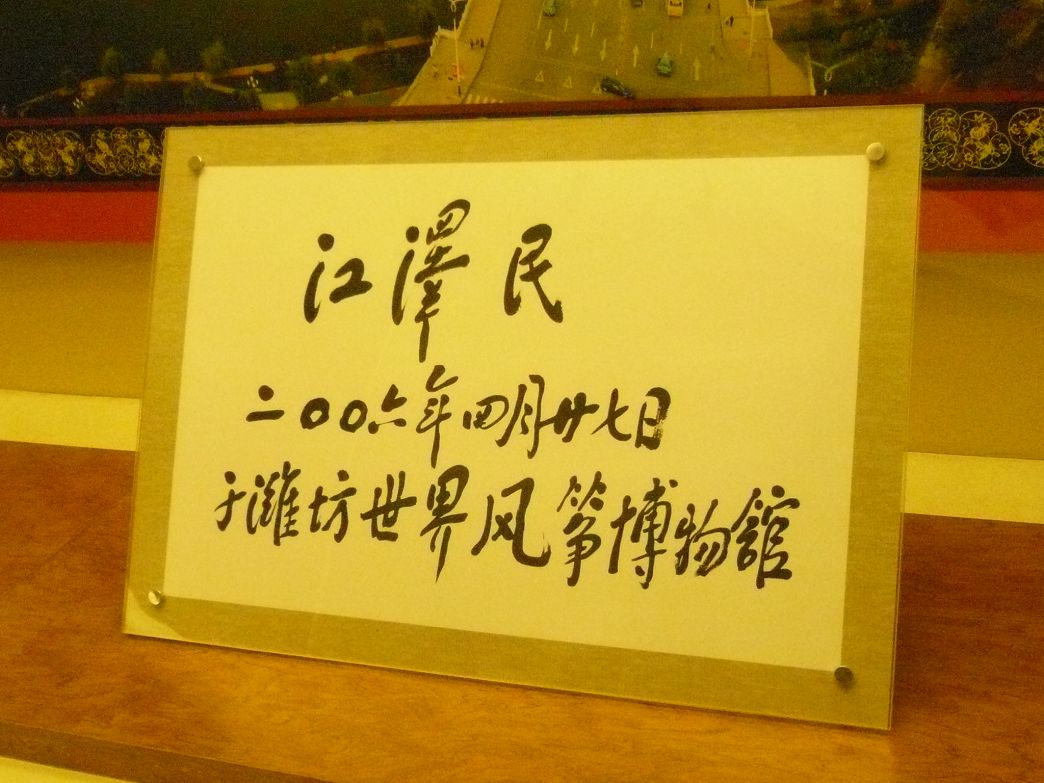 江澤民
二〇〇六年四月廿七日
于潍坊世界风筝博物館